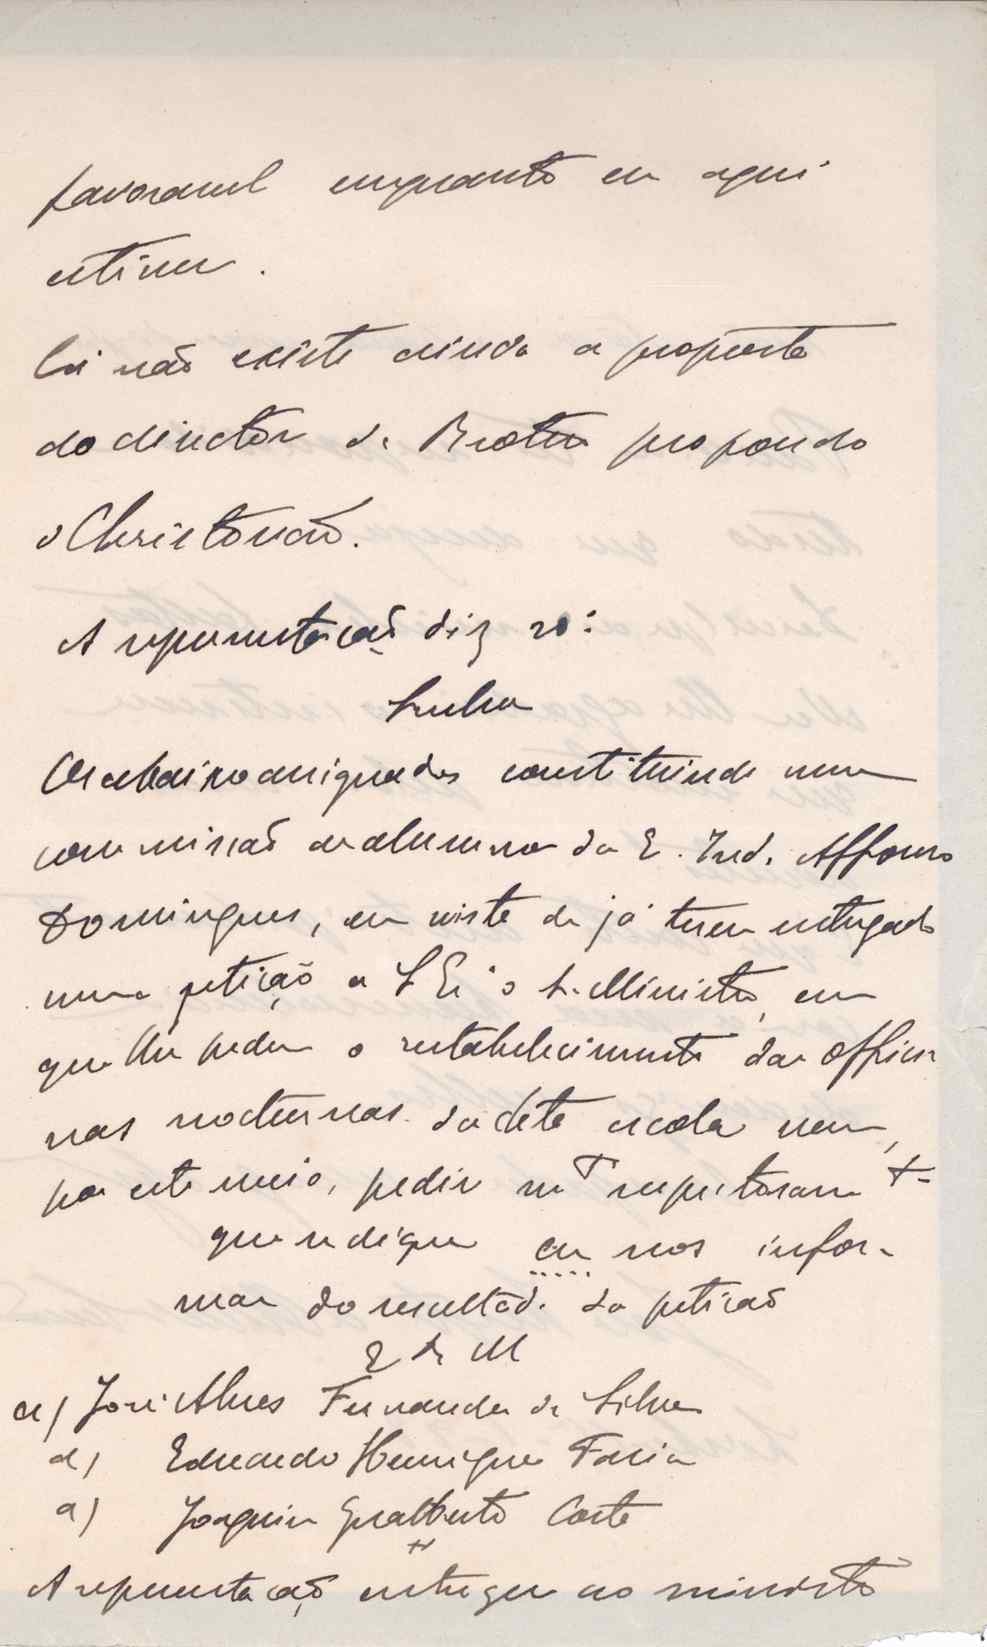 favoravel emquanto eu aqui
estiver.
Cá não existe ainda a proposta
do director da Brotero propondo
o Christovão.
A representação diz só:
Senhor
Os abaixo assignados constituindo uma
commissão de alumnos da E. Ind. Affonso
Domingues, em vista de já terem entregado
uma petição a S Ex.ª o Sr. Ministro, em
que lhe pedem o restabelecimento das officí
nas nocturnas desta escola vem,
por este meio, pedir m.to respeitosam.te
que se digne em nos infor-
mar do resultado da petição
E. R. M
a) José Alves Fernandes da Silva
a) Eduardo Henrique Faria
a) Joaquim Gualberto Costa
A representação entregue ao ministro